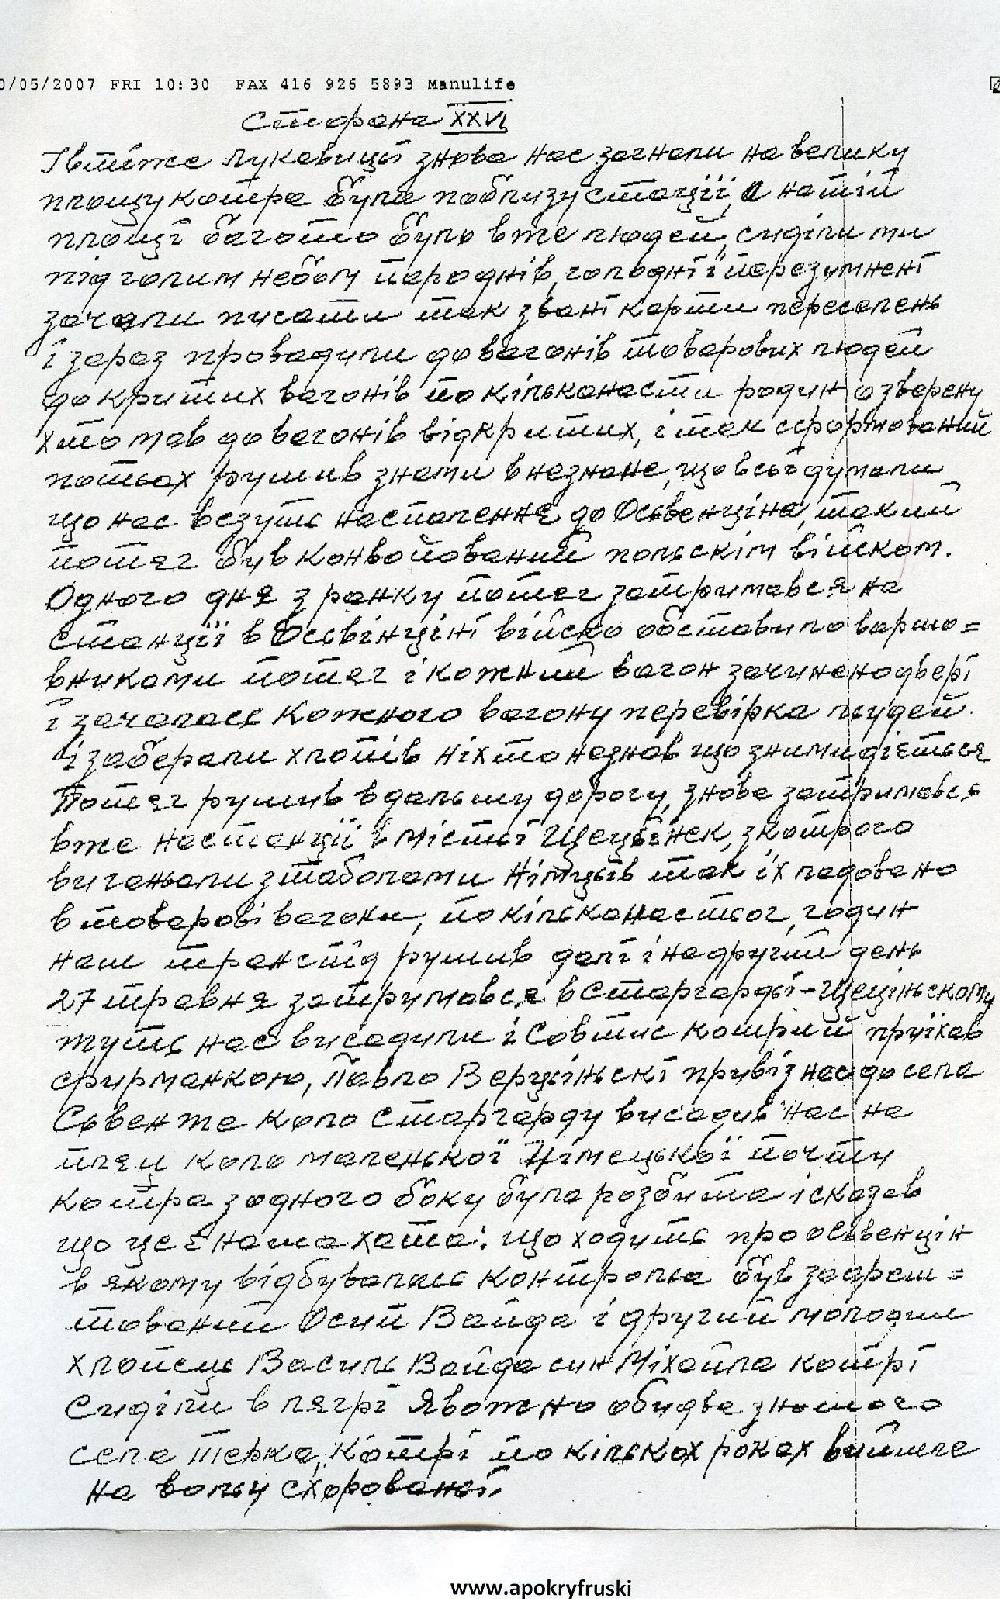 0/05/2007 FRI 10:30 FAX 416 926 5893 Manulife
Сторона XXVI
І втіже Лукавицї знова нас загнали на велику
площу котра була поблизу стації, а на тій
площі багато було вже людей, сиділи ми
під голим небом пару днів, голодні і перезумнені
зачали писати так звані карти переселень
і зараз провадили до вагонів товарових людей
до критих вагонів по кільканасти родин а зверену
хто мав до вагонів відкритих, і так сформований
потьах рушив знами в незнане, що всьі думали
що нас везуть наспаленнє до Осьвенціна, такий
потяг був конвойований польскім війском.
Одного дня з ранку потяг затримався на
станції в Осьвінціні війско обставило варто=
вниками потяг і кожний вагон зачинено двері
і зачалась кожного вагону перевірка льудей.
і заберали хлопів ніхто незнав що зними діється
Потяг рушив в дальшу дорогу, знова затримавсь
вже настанції в місьтї Щецьвінек, з котрого
виганьали з таболами Німцьів так їх ладовано
в товарові вагони, по кільканастьог годин
наш транспід рушив далі і на другий день
27 травня затримався в Старгарді-Щеціньскому
тутьь нас висадили і Совтис котрий приїхав
фурманкою, Павло Верціньскі привіз нас до села
Сьвенте коло Старгарду висадив нас на
пляц коло маленької Німецької почти
котра з одного боку була розбита і сказав
що це є наша хата: що ходить про Осьвенцін
в якому відбувалась контрольа був заареш=
тований Осип Вайда і другий молодий
хлопець Василь Вайда син Міхайла котрі
сиділи в лягрі Явожно обидва з нашого
села Терка, котрі по кількох роках вийшле
на вольу схорованьї.
www.apokryfruski